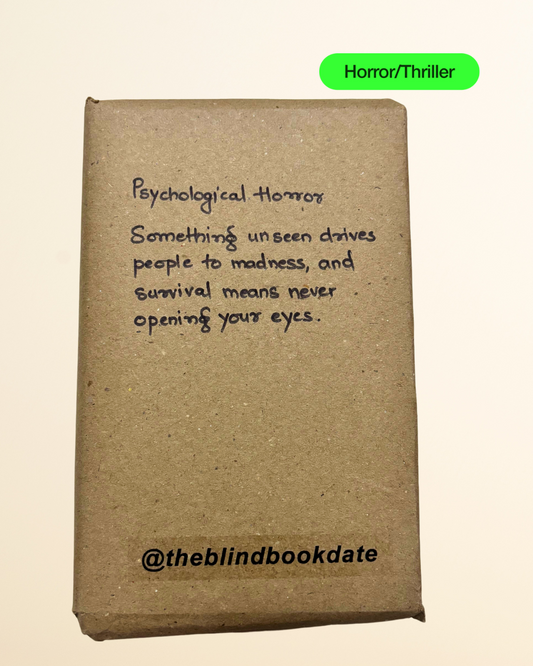 Horror/Thriller
Psychological Horror
Something unseen drives
people to madness, and
survival means never
opening your eyes.
@theblindbookdate